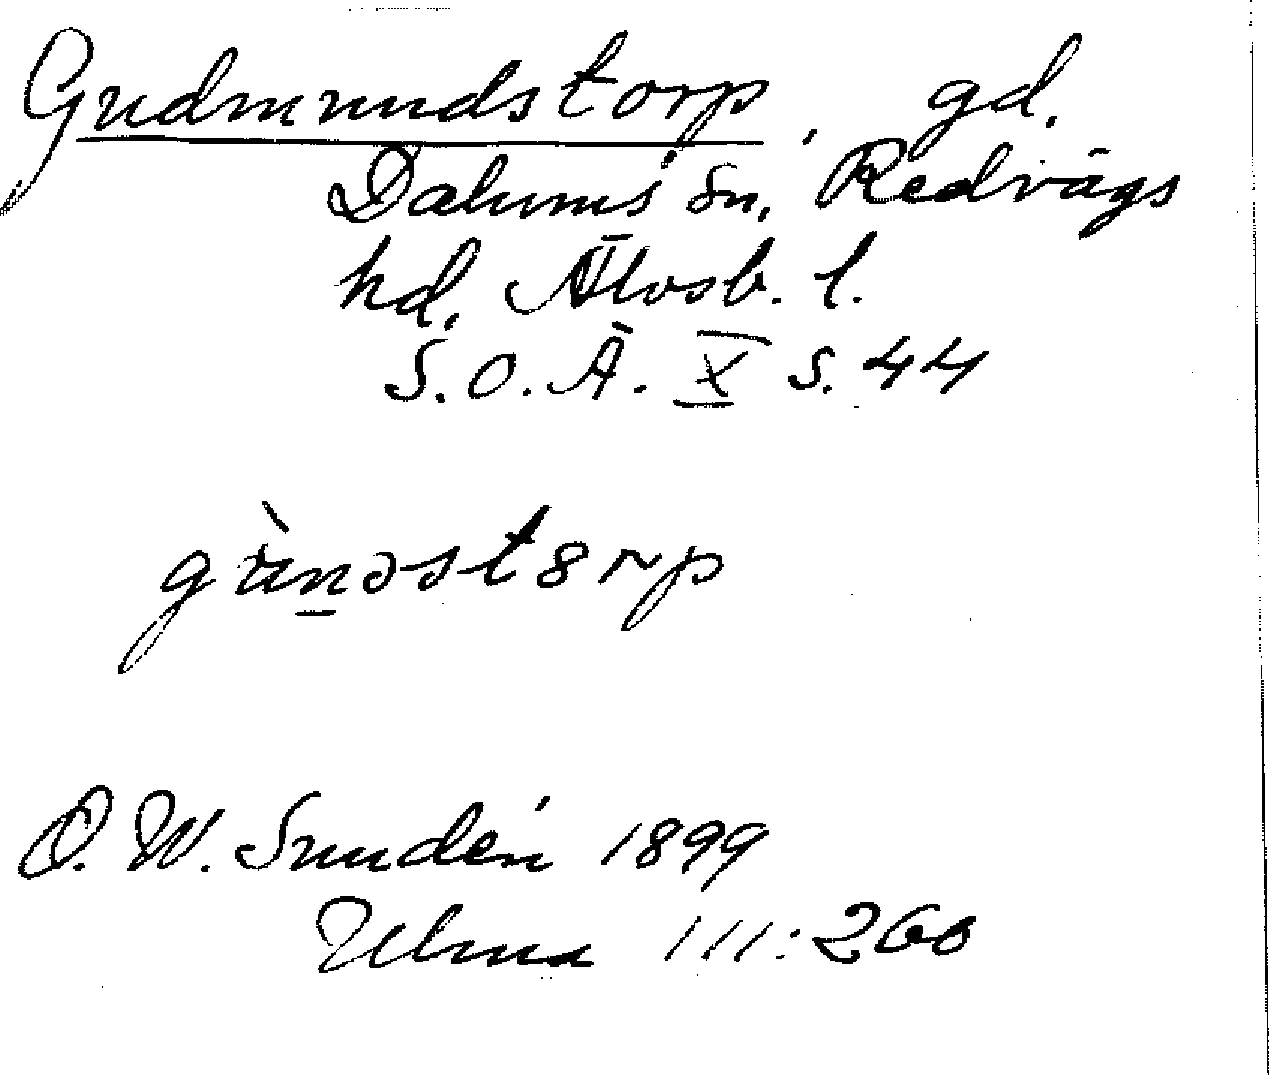 Gudmundstorp, gd.
Dalums sn, Redvägs
hd, Älvsb. l.
S. O. Ä. X s. 44
gùnəstorp
O. W. Sundén 1899
Ulma 111:260